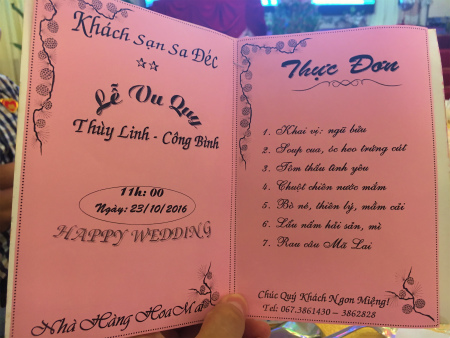 Khách Sạn Sa Đéc
Lễ Vu Quy
Thùy Linh - Công Bình
11h: 00
Ngày: 23/10/2016
HAPPY WEDDING
Nhà Hàng Hoa Mai
Thực Đơn
1. Khai vị: ngũ bửu
2. Soup cua, óc heo trứng cút
3. Tôm thấu tình yêu
4. Chuột chiên nước mắm
5. Bò né, thiên lý, mầm cải
6. Lẩu nấm hải sản, mì
7. Rau câu Mã Lai
Chúc Quý Khách Ngon Miệng!
Tel: 067.3861430 – 3862828